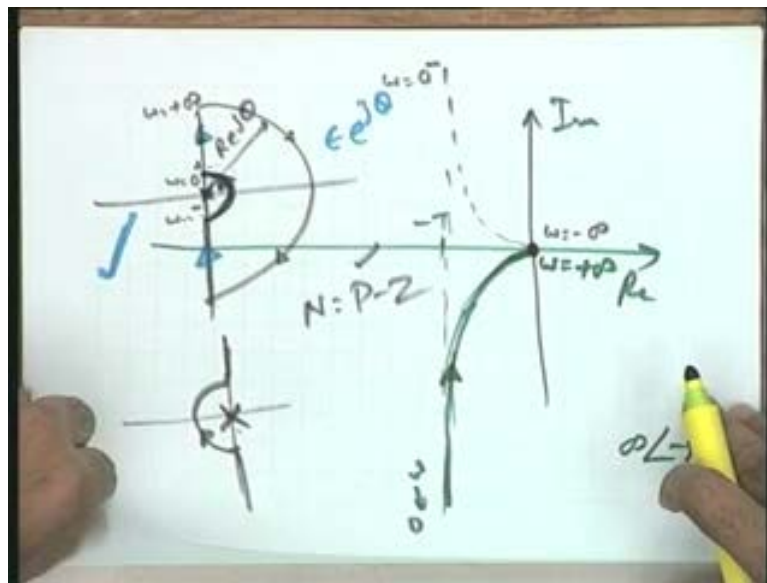 ω=+∞
Re^jθ
ϵe^jθ
ω=0⁺
ω=0⁻
ω=0⁻
Im
-T
ω=-∞
ω=+∞
Re
N=P-Z
ω=0